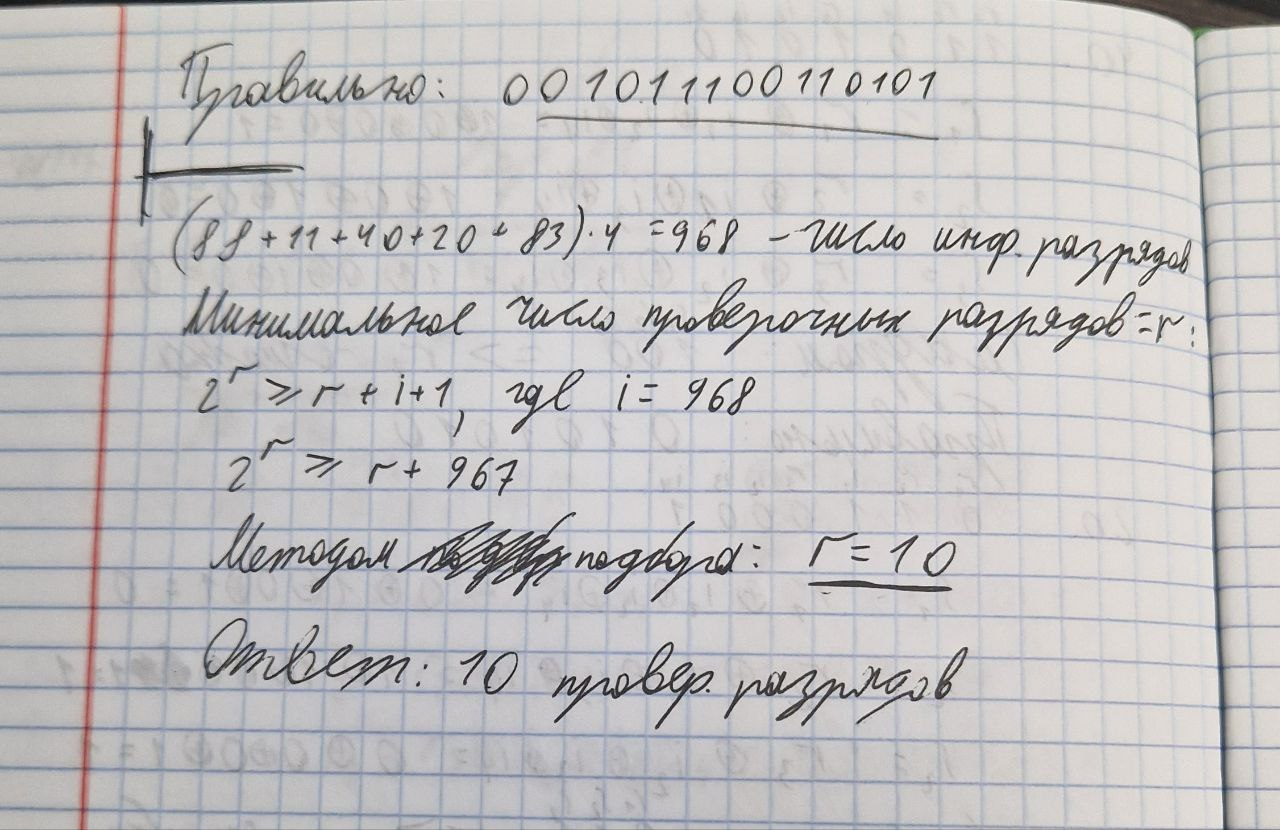 Правильно: 001011100110101
(88+11+40+20+83)·4=968 – число инф. разрядов
Минимальное число проверочных разрядов=r:
2^r ⩾ r+i+1, где i=968
2^r ⩾ r+967
Методом подбора: r=10
Ответ: 10 провер. разрядов